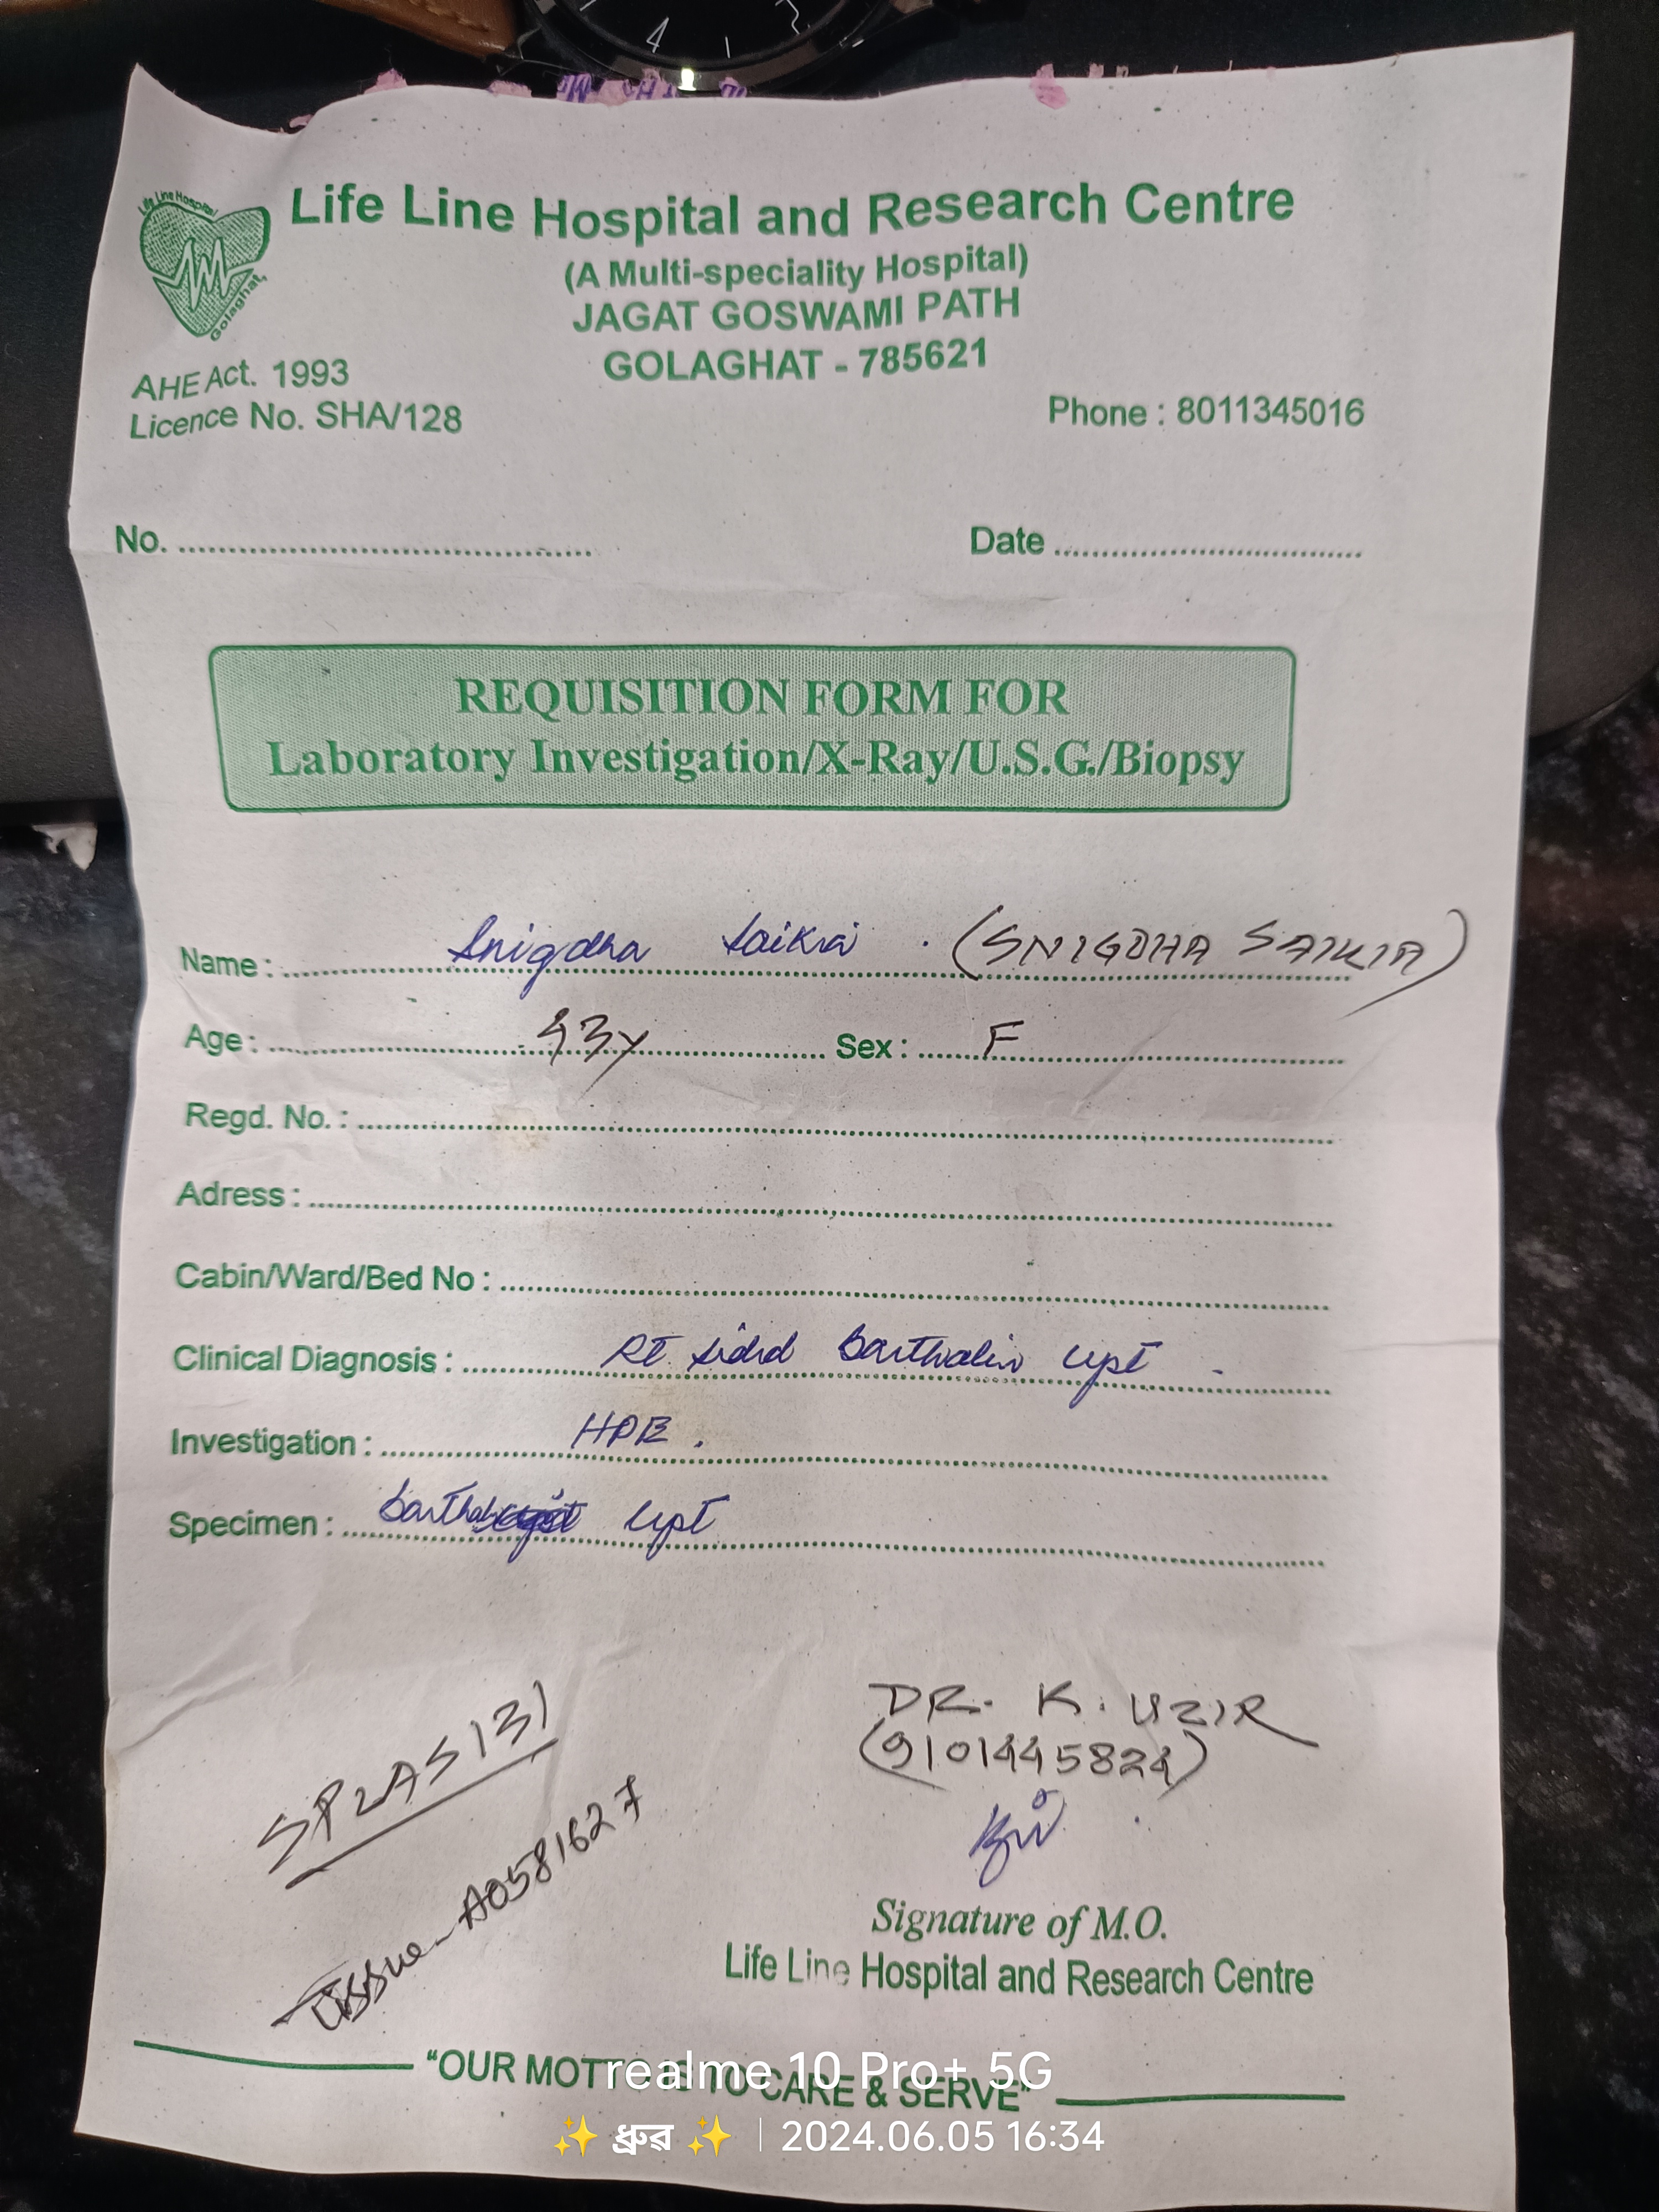 Life Line Hospital
Golaghat.
Life Line Hospital and Research Centre
(A Multi-speciality Hospital)
JAGAT GOSWAMI PATH
GOLAGHAT - 785621
AHE Act. 1993
Licence No. SHA/128
Phone : 8011345016
No. ........................................
Date ..............................
REQUISITION FORM FOR
Laboratory Investigation/X-Ray/U.S.G./Biopsy
Name : Snigdha Saikia . (SNIGDHA SAIKIA)
Age : 43y Sex : F
Regd. No. :
Adress :
Cabin/Ward/Bed No :
Clinical Diagnosis : Rt sided barthalin cyst .
Investigation : HPE .
Specimen : cyst
SP2AS131
Tissue - A0581627
DR. K. UZIR
(9101445824)
Signature of M.O.
Life Line Hospital and Research Centre
"OUR MOTTO IS TO CARE & SERVE"
realme 10 Pro+ 5G
✨ ধ্ৰুৱ ✨ | 2024.06.05 16:34